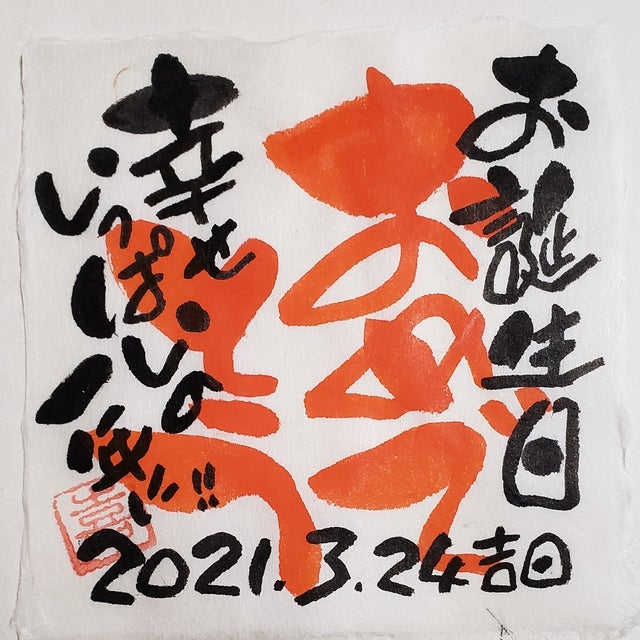 お誕生日
おめで
とう
幸せ
いっぱい
2021.3.24吉日